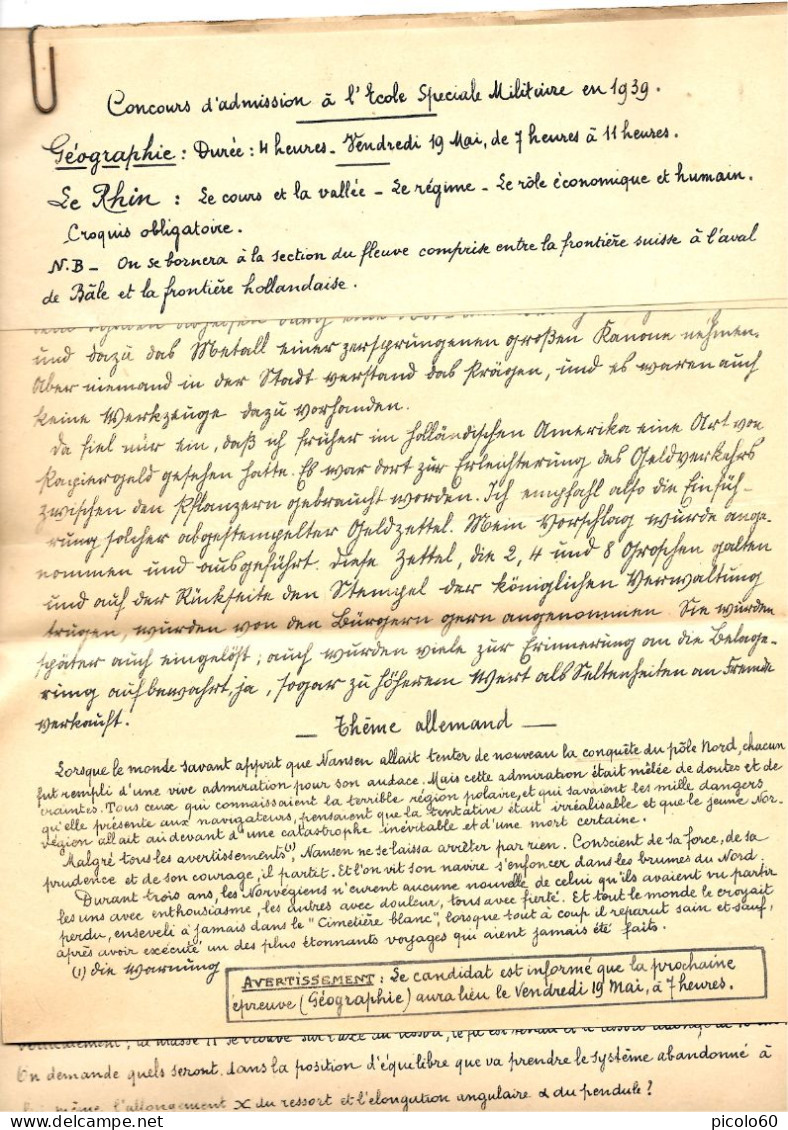 Concours d'admission à l'Ecole Speciale Militaire en 1939.
Géographie : Durée : 4 heures - Vendredi 19 Mai, de 7 heures à 11 heures.
Le Rhin : Le cours et la vallée - Le régime - Le rôle économique et humain.
Croquis obligatoire.
N.B - On se bornera à la section du fleuve comprise entre la frontière suisse à l'aval
de Bâle et la frontière hollandaise.
und dazu das Metall einer zersprungenen großen Kanone nehmen.
Aber niemand in der Stadt verstand das Prägen, und es waren auch
keine Werkzeuge dazu vorhanden.
Da fiel mir ein, daß ich früher im holländischen Amerika eine Art von
Papiergeld gesehen hatte. Es war dort zur Erleichterung des Geldverkehrs
zwischen den Pflanzern gebraucht worden. Ich empfahl also die Einfüh-
rung solcher abgestempelter Geldzettel. Mein Vorschlag wurde ange-
nommen und ausgeführt. Diese Zettel, die 2, 4 und 8 Groschen galten
und auf der Rückseite den Stempel der königlichen Verwaltung
trugen, wurden von den Bürgern gern angenommen. Sie wurden
später auch eingelöst; auch wurden viele zur Erinnerung an die Belage-
rung aufbewahrt, ja, sogar zu höherem Wert als Seltenheiten an Fremde
verkauft.
- Thème allemand -
Lorsque le monde savant apprit que Nansen allait tenter de nouveau la conquête du pôle Nord, chacun
fut rempli d'une vive admiration pour son audace. Mais cette admiration était mêlée de doutes et de
craintes. Tous ceux qui connaissaient la terrible région polaire, et qui savaient les mille dangers
qu'elle présente aux navigateurs, pensaient que la tentative était irréalisable et que le jeune Nor-
végien allait au devant d'une catastrophe inévitable et d'une mort certaine.
Malgré tous les avertissements (1), Nansen ne se laissa arrêter par rien. Conscient de sa force, de sa
prudence et de son courage, il partit. Et l'on vit son navire s'enfoncer dans les brumes du Nord.
Durant trois ans, les Norvégiens n'eurent aucune nouvelle de celui qu'ils avaient vu partir
les uns avec enthousiasme, les autres avec douleur, tous avec fierté. Et tout le monde le croyait
perdu, enseveli à jamais dans le "Cimetière blanc", lorsque tout à coup il reparut sain et sauf,
après avoir exécuté un des plus étonnants voyages qui aient jamais été faits.
(1) die Warnung
AVERTISSEMENT : Le candidat est informé que la prochaine
épreuve (Géographie) aura lieu le Vendredi 19 Mai, à 7 heures.
On demande quels seront dans la position d'équilibre que va prendre le système abandonné à
même l'allongement x du ressort et l'élongation angulaire α du pendule ?
picolo60